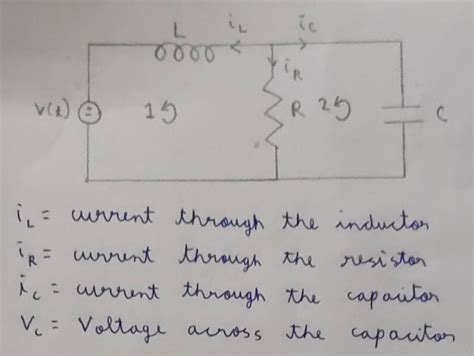 L iL iC
iR
V(t) 1 R 2 C
iL = current through the inductor
iR = current through the resistor
iC = current through the capacitor
VC = Voltage across the capacitor